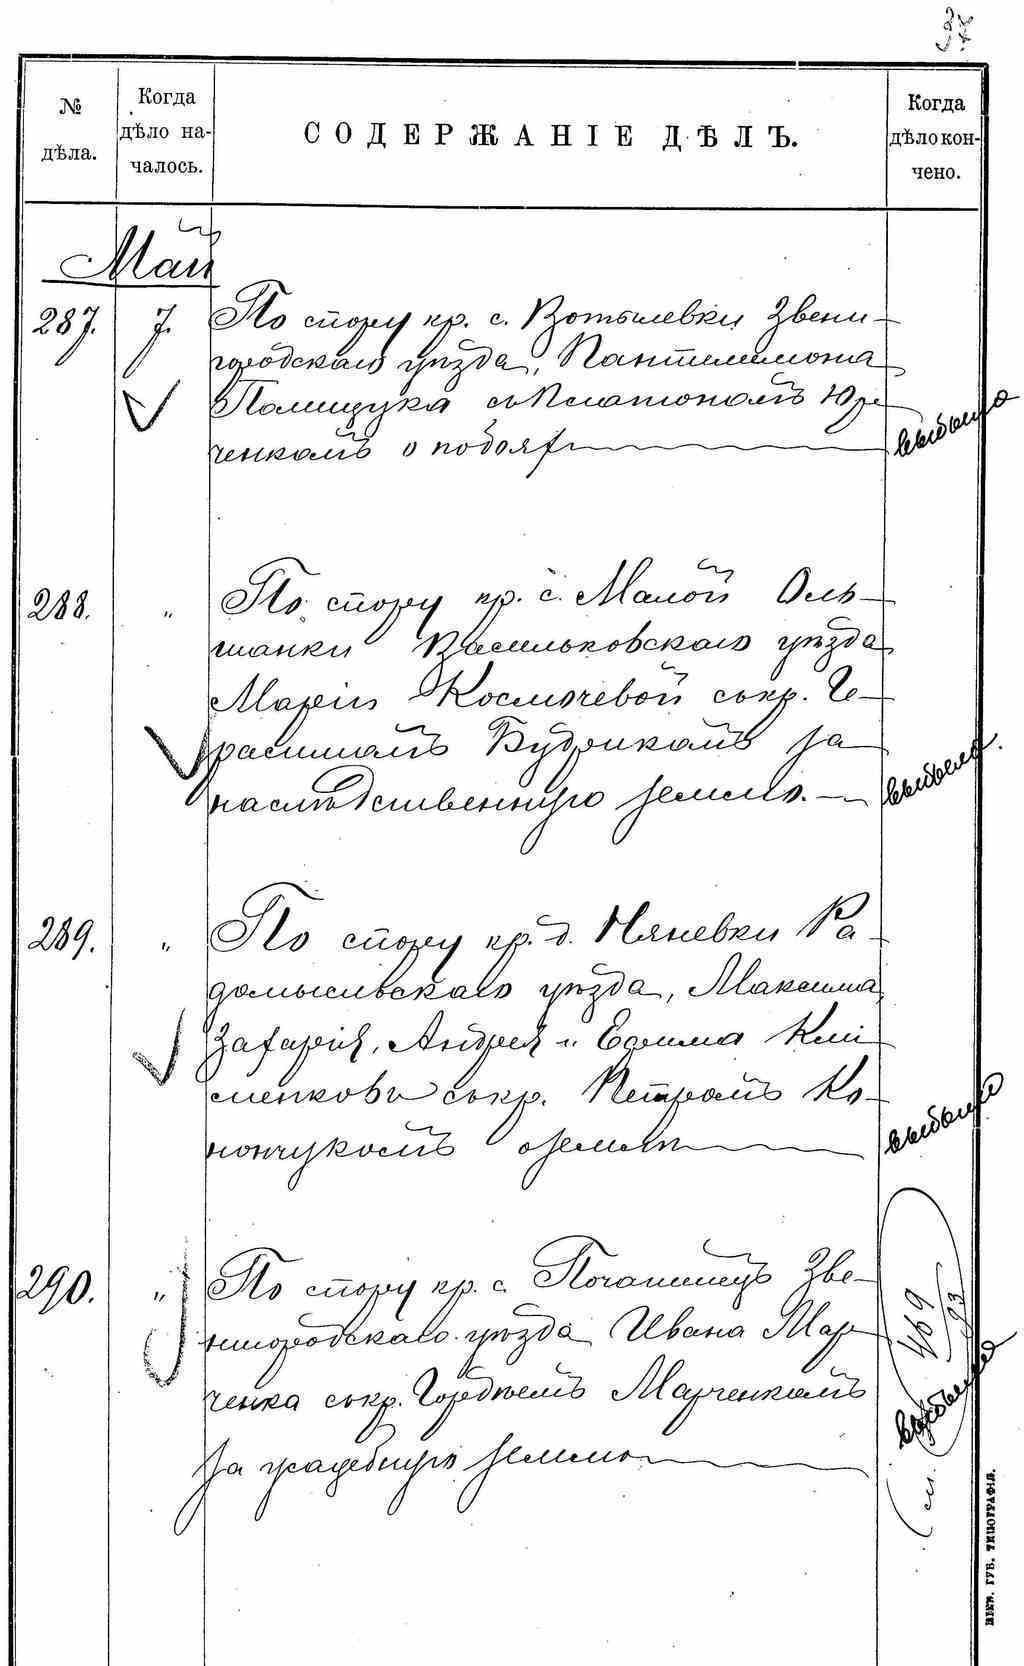 37
№ дѣла.
Когда дѣло началось.
СОДЕРЖАНІЕ ДѢЛЪ.
Когда дѣло кончено.
Май
287. 7. По спору кр. с. Вотылевки Звени-
городскаго уѣзда, Пантилимона
Полищука съ Платономъ Юр-
ченкомъ о побоях
выбыло
288. " По спору кр. с. Малой Оль-
шанки Васильковскаго уѣзда
Маріи Космачевой съ кр. Ге-
расимомъ Будрикомъ за
наслѣдственную землю.
выбыло.
289. " По спору кр. д. Няневки Ра-
домысльскаго уѣзда, Максима,
Захарія, Андрея и Ефима Кли-
менковъ съ кр. Петромъ Ко-
нончукомъ о землѣ
выбыло
290. " По спору кр. с. Почапинецъ Зве-
нигородскаго уѣзда Ивана Мар-
ченка съ кр. Гордѣемъ Марченкомъ
за усадебную землю
469/93
выбыло
см.
КІЕВ. ГУБ. ТИПОГРАФІЯ.